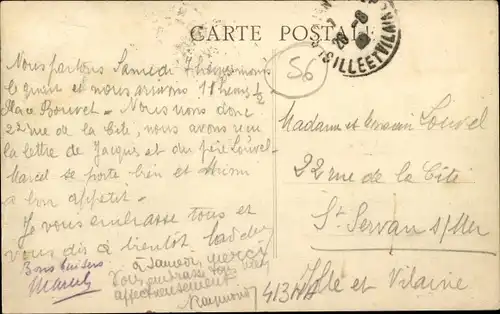 CARTE POSTALE
28-8
ILLE ET VILAINE
56
Nous partons Samedi 7 heures moins
le quart et nous arrivons 11 heures 1/2
Place Bouvet - Nous irons donc
22 rue de la Cité, nous avons reçu
la lettre de Jacques et du père Louvel
Marcel se porte bien et
a bon appétit -
Je vous embrasse tous et
vous dis à bientôt.
Bons baisers
Marcel
à Samedi mercy
Vous embrasse tous
affectueusement
Raymond
Madame et Monsieur Louvel
22 rue de la Cité
St Servan s/Mer
Ille et Vilaine